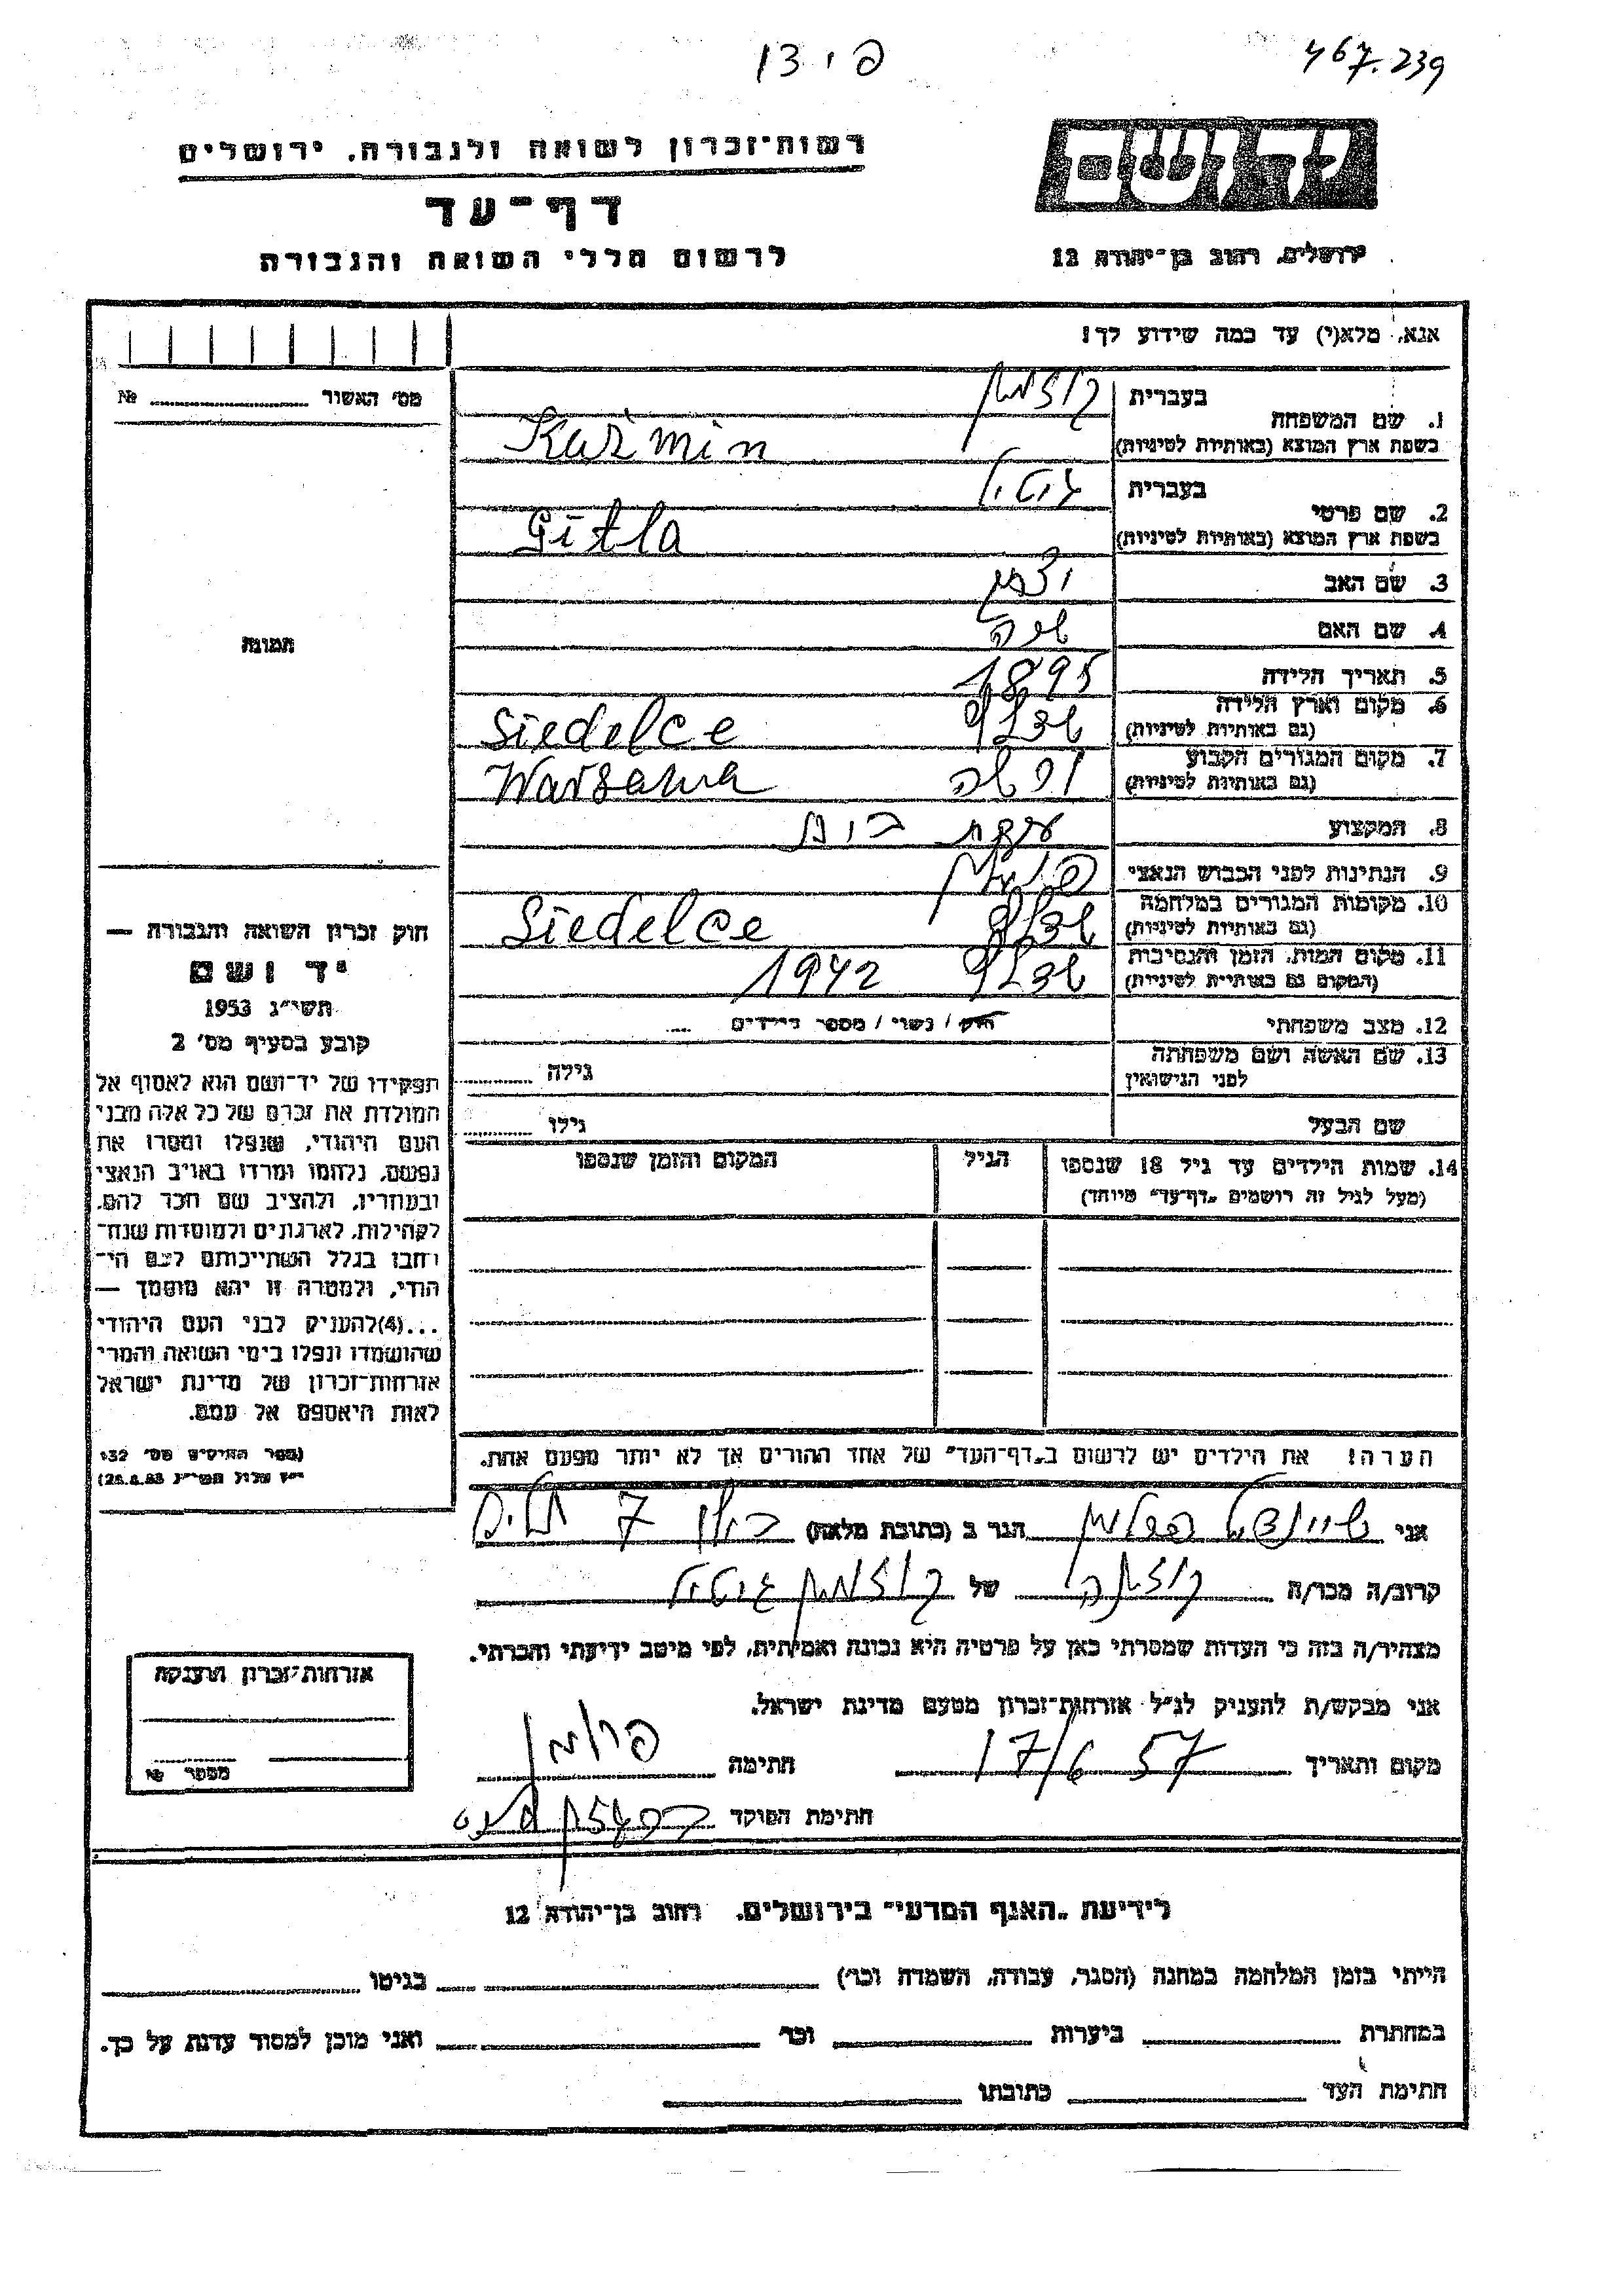 467.239
יד ושם
רשות־זכרון לשואה ולגבורה, ירושלים
דף־עד
ירושלים, רחוב בן־יהודה 12
לרשום חללי השואה והגבורה
אנא, מלא(י) עד כמה שידוע לך!
מס׳ האשור № 
1. שם המשפחה
בעברית
בשפת ארץ המוצא (באותיות לטיניות) Kaźmin
2. שם פרטי
בעברית גיטל
בשפת ארץ המוצא (באותיות לטיניות) Gitla
3. שם האב
4. שם האם
5. תאריך הלידה 1895
6. מקום וארץ הלידה
(גם באותיות לטיניות) שדלץ Siedelce
7. מקום המגורים הקבוע
(גם באותיות לטיניות) ורשה Warszawa
8. המקצוע עקרת בית
9. הנתינות לפני הכבוש הנאצי פולנית
10. מקומות המגורים במלחמה
(גם באותיות לטיניות) שדלץ Siedelce
11. מקום המות, הזמן והנסיבות
(המקום גם באותיות לטיניות) שדלץ 1942
12. מצב משפחתי רווק / נשוי / מספר הילדים
13. שם האשה ושם משפחתה
לפני הנישואין
גילה
שם הבעל גילו
14. שמות הילדים עד גיל 18 שנספו
(מעל לגיל זה רושמים „דף־עד״ מיוחד)
הגיל
המקום והזמן שנספו
הערה! את הילדים יש לרשום ב„דף־העד״ של אחד ההורים אך לא יותר מפעם אחת.
תמונה
חוק זכרון השואה והגבורה —
יד ושם
תשי״ג 1953
קובע בסעיף מס׳ 2
תפקידו של יד־ושם הוא לאסוף אל
המולדת את זכרם של כל אלה מבני
העם היהודי, שנפלו ומסרו את
נפשם, נלחמו ומרדו באויב הנאצי
ובעוזריו, ולהציב שם וזכר להם,
לקהילות, לארגונים ולמוסדות שנח־
רבו בגלל השתייכותם לעם הי־
הודי, ולמטרה זו יהא מוסמך —
...(4)להעניק לבני העם היהודי
שהושמדו ונפלו בימי השואה והמרי
אזרחות־זכרון של מדינת ישראל
לאות היאספם אל עמם.
(ספר החוקים מס׳ 132
י״ז אלול תשי״ג 28.8.53)
אני הגר ב (כתובת מלאה) 7
קרוב/ה מכר/ה של גיטל
מצהיר/ה בזה כי העדות שמסרתי כאן על פרטיה היא נכונה ואמיתית, לפי מיטב ידיעתי והכרתי.
אני מבקש/ת להעניק לנ״ל אזרחות־זכרון מטעם מדינת ישראל.
מקום ותאריך 17/6 57 חתימה
חתימת הפוקד
אזרחות־זכרון הוענקה
מספר №
לידיעת „האגף המדעי״ בירושלים, רחוב בן־יהודה 12
הייתי בזמן המלחמה במחנה (הסגר, עבודה, השמדה וכר׳) בגיטו
במחתרת ביערות וכר׳ ואני מוכן למסור עדות על כך.
חתימת העד כתובתו